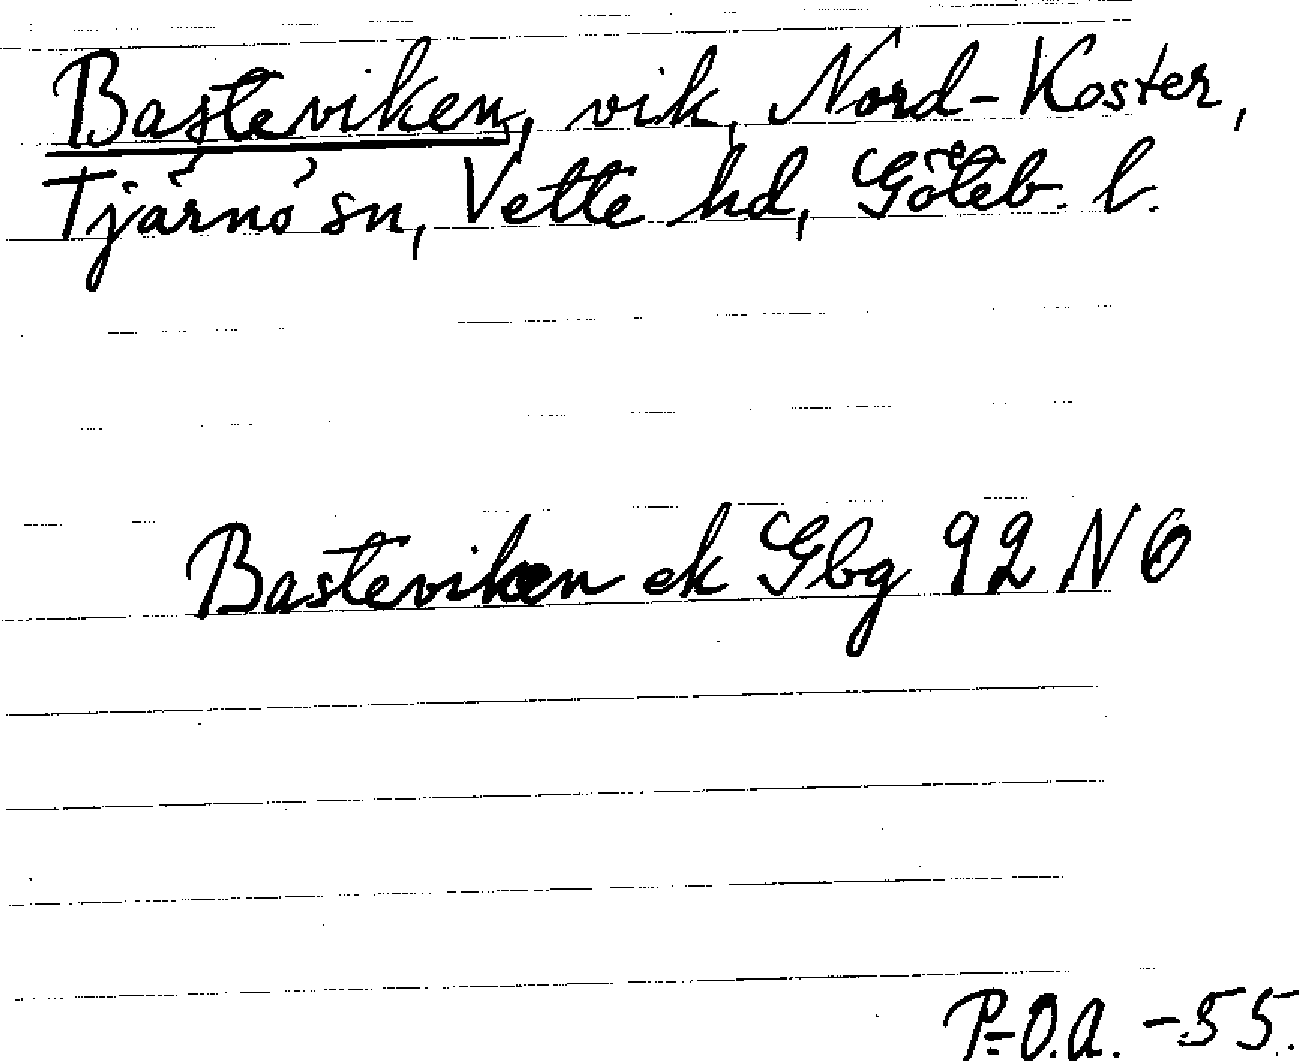 Basteviken, vik, Nord-Koster,
Tjärnö sn, Vette hd, Göteb. l.
Basteviken ek Gbg 92 NO
P-O.A. -55.